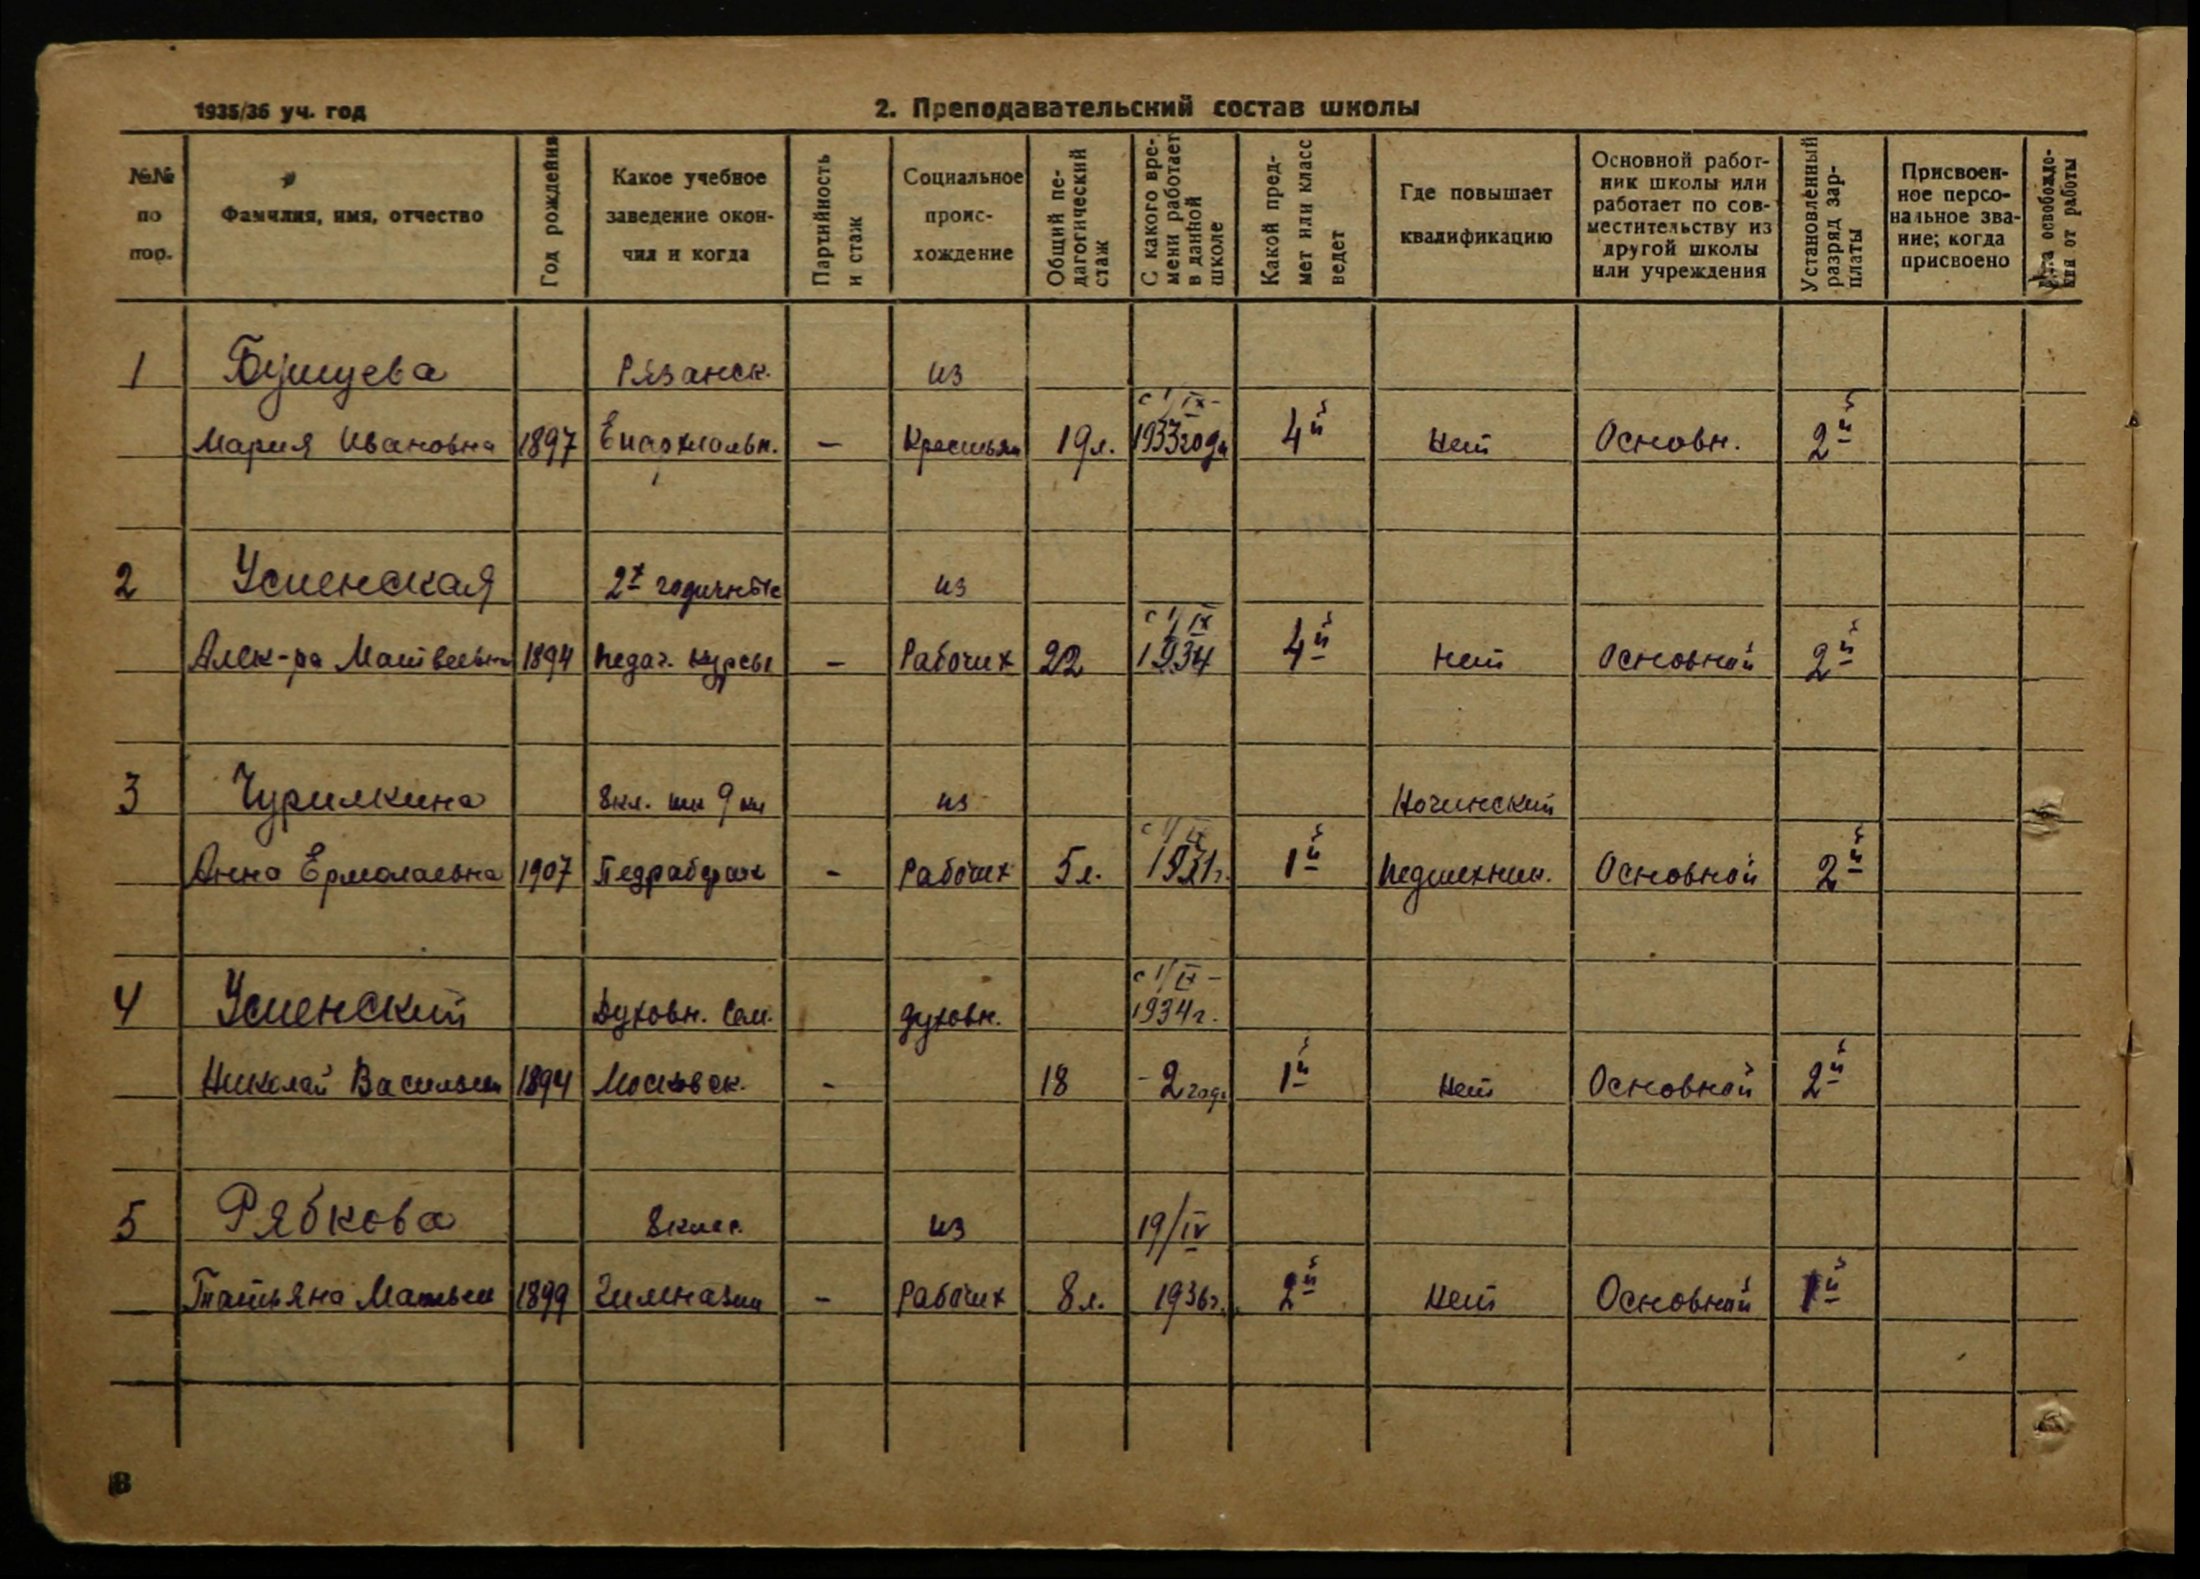 1935/36 уч. год
2. Преподавательский состав школы
№№ по пор.
Фамилия, имя, отчество
Год рождения
Какое учебное заведение окончил и когда
Партийность и стаж
Социальное происхождение
Общий педагогический стаж
С какого времени работает в данной школе
Какой предмет или класс ведет
Где повышает квалификацию
Основной работник школы или работает по совместительству из другой школы или учреждения
Установленный разряд зарплаты
Присвоенное персональное звание; когда присвоено
Дата освобождения от работы
1 Бушуева Рязанск. из
с 1/IX-
Мария Ивановна 1897 Епархиальн. — Крестьян 19 л. 1933 года 4й Нет Основн. 2й
2 Успенская 2х годичные из
с 1/IX
Алек-ра Матвеевн 1894 Педаг. курсы — Рабочих 22 1934 4й Нет Основной 2й
3 Чурилкина 8 кл. шк 9 кл из Ногинский
с 1/IX
Анна Ермолаевна 1907 - Рабочих 5 л. 1931г. 1й Педтехник. Основной 2й
с 1/IX -
4 Успенский Духовн. Сем. духовн. 1934г.
Николай Васильев 1894 Московск. - 18 - 2 года 1й Нет Основной 2й
5 Рябкова 8 класс. из 19/IV
Татьяна 1899 Гимназии - Рабочих 8 л. 1936г. 2й Нет Основной 1й
8